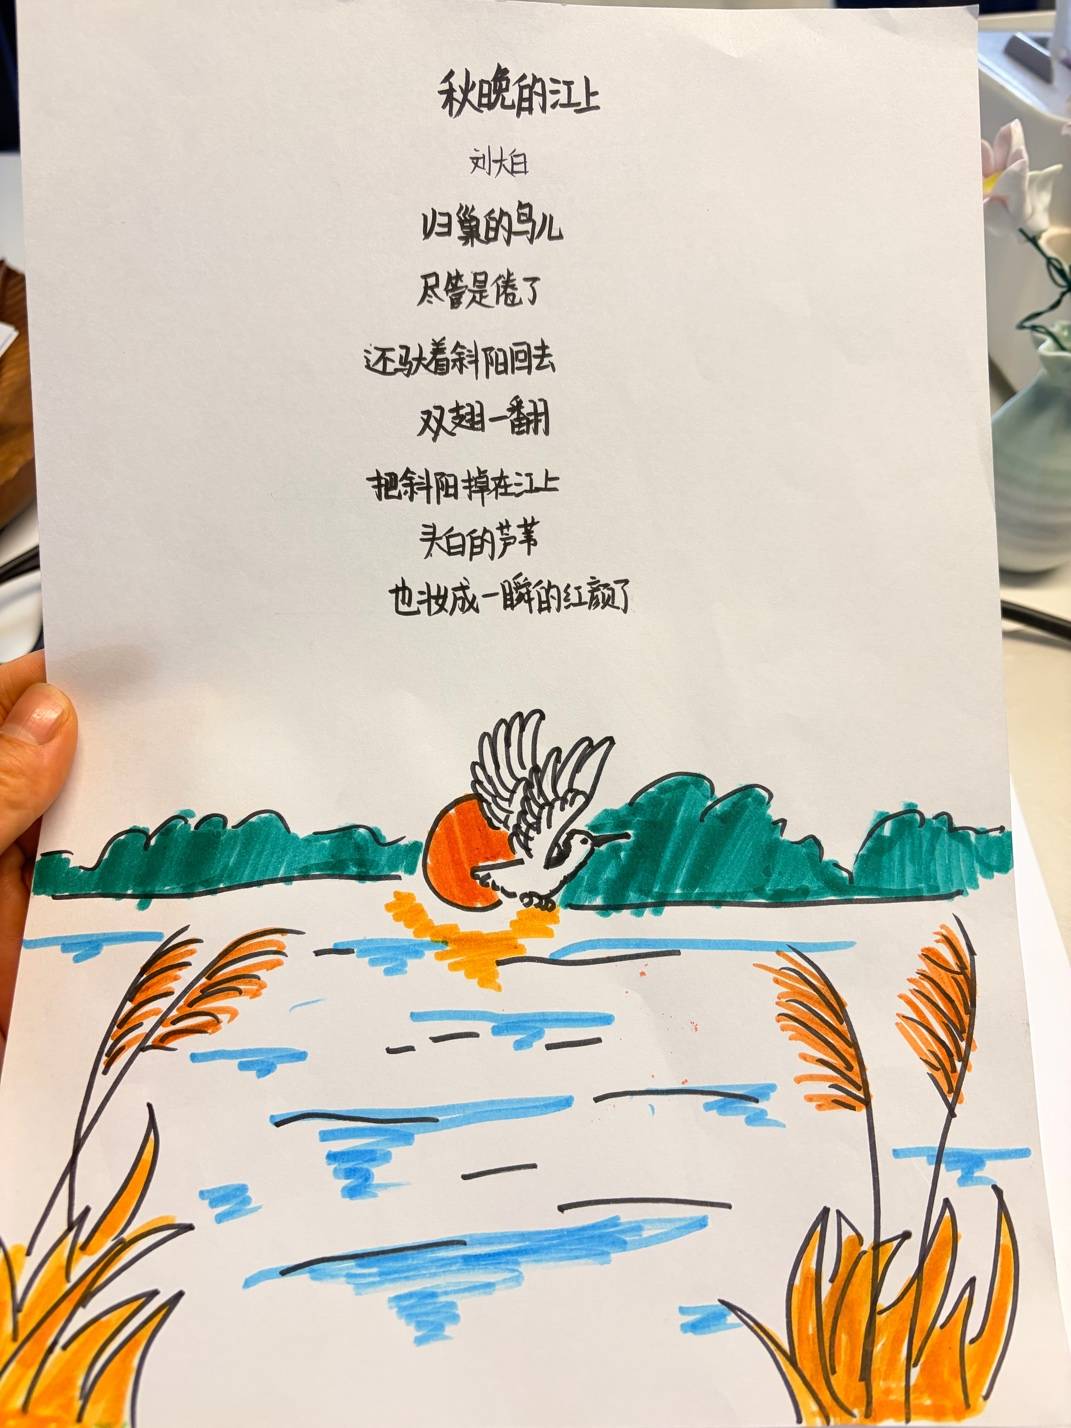 秋晚的江上
刘大白
归巢的鸟儿
尽管是倦了
还驮着斜阳回去
双翅一翻
把斜阳掉在江上
头白的芦苇
也妆成一瞬的红颜了